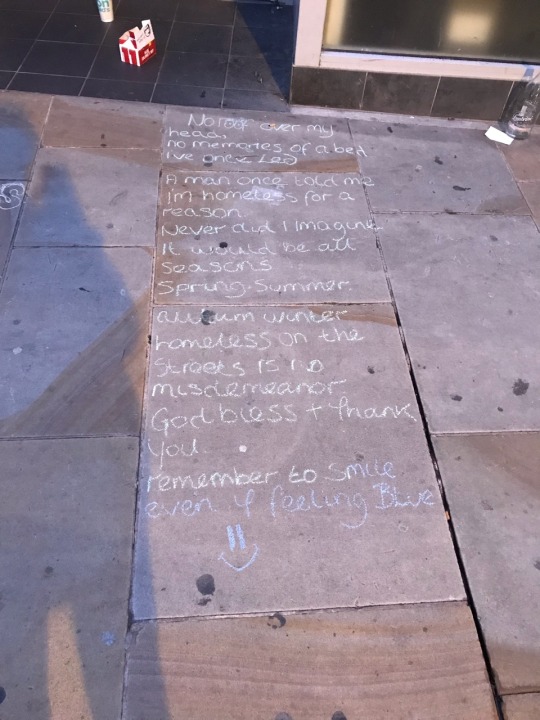 No roof over my
head,
no memories of a bed
I've once Led
A man once told me
I'm homeless for a
reason
Never did I Imagine
It would be all
seasons
Spring. Summer.
autumn winter
homeless on the
streets is no
misdemeanor
God bless + thank
you
remember to smile
even if feeling Blue